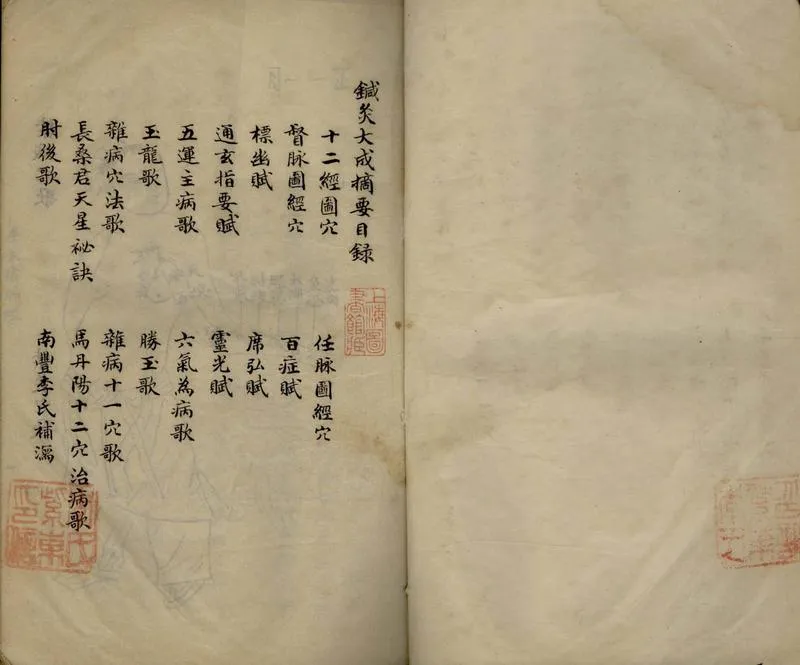 鍼灸大成摘要目録
十二經圖穴
任脉圖經穴
督脉圖經穴
百症賦
標幽賦
席弘賦
通玄指要賦
靈光賦
五運主病歌
六氣為病歌
玉龍歌
勝玉歌
雜病穴法歌
雜病十一穴歌
長桑君天星祕訣
馬丹陽十二穴治病歌
肘後歌
南豐李氏補瀉
上海圖
書館藏